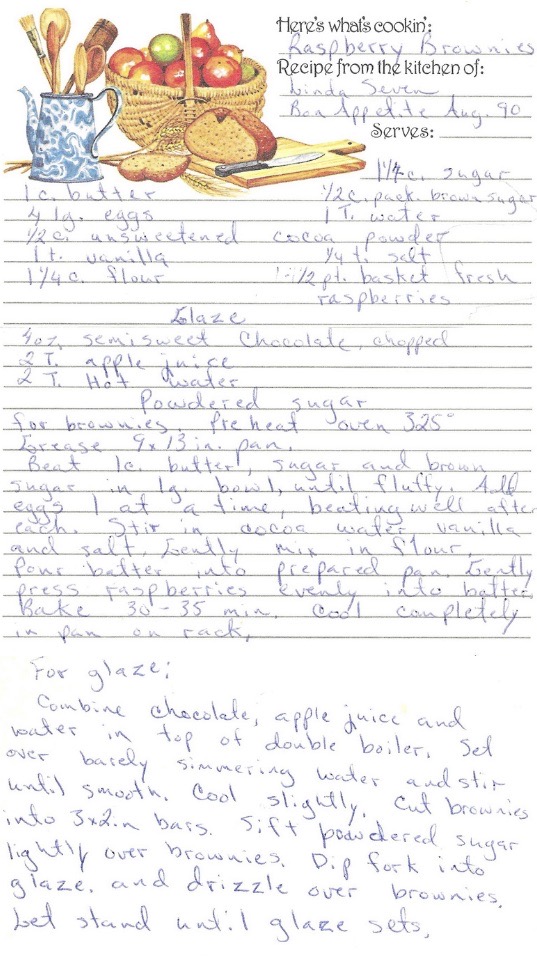 Here's what's cookin':
Raspberry Brownies
Recipe from the kitchen of:
Linda Seven
Bon Appetite Aug. 90
Serves:
1 1/4 c. sugar
1 c. butter 1/2 c. pack. brown sugar
4 lg. eggs 1 T. water
1/2 c. unsweetened cocoa powder
1 t. vanilla 1/4 t. salt
1 1/4 c. flour 1/2 pt. basket fresh
raspberries
Glaze
4 oz. semisweet Chocolate, chopped
2 T. apple juice
2 T. Hot water
Powdered sugar
for brownies. Preheat oven 325°
Grease 9x13 in. pan.
Beat 1c. butter, sugar and brown
sugar in lg. bowl, until fluffy. Add
eggs 1 at a time, beating well after
each. Stir in cocoa water vanilla
and salt. Gently mix in flour.
Pour batter into prepared pan. Gently
press raspberries evenly into batter.
Bake 30-35 min. Cool completely
in pan on rack.
For glaze:
Combine chocolate, apple juice and
water in top of double boiler. Set
over barely simmering water and stir
until smooth. Cool slightly. Cut brownies
into 3x2in bars. Sift powdered sugar
lightly over brownies. Dip fork into
glaze. and drizzle over brownies.
Let stand until glaze sets.